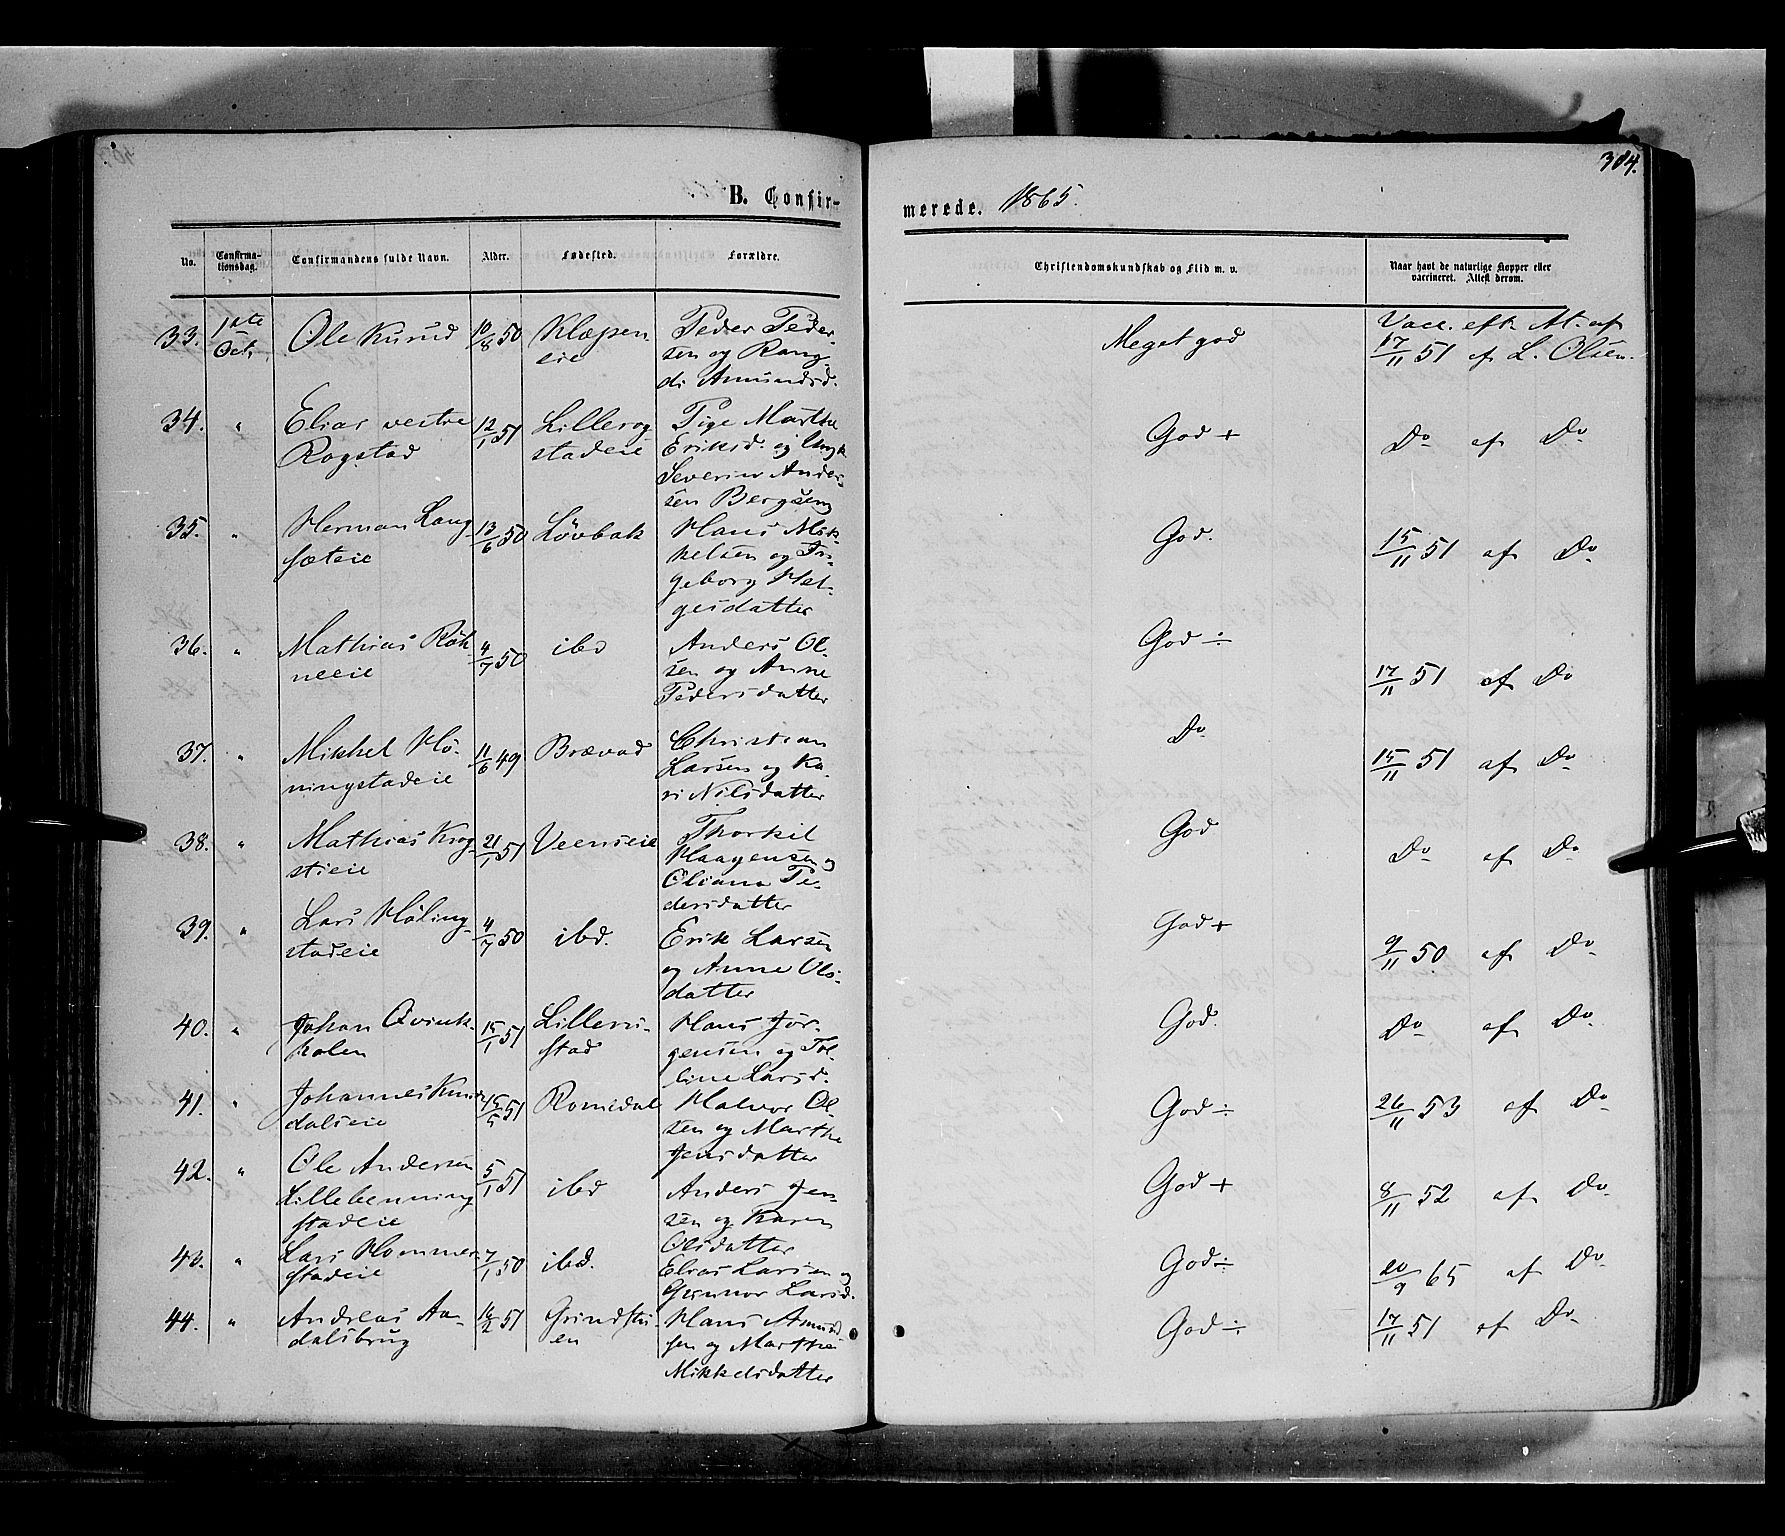 384.
B. Confir-
merede. 1865.
No.
Confirma-
tionsdag.
Confirmandens fulde Navn.
Alder.
Fødested.
Forældre.
Christendomskundskab og Flid m. v.
Naar havt de naturlige Kopper eller
vaccineret. Attest derom.
33. 1ste Oct. Ole Kurud 10/8 50 Klæpen
eie
Peder Peder-
sen og Rang-
di Amundsd.
Meget god
Vacc. eft. At. af
17/11 51 af L. Olsen.
34. " Elias vestre
Rogstad
12/1 51
Lillerog
stadeie
Pige Marthe
Eriksd. og Ungk
Severin Ander-
sen Bergseng
God +
Do af Do
35. " Herman Lang-
sæteie
13/6 50 Løvbak
Hans Mik-
kelsen og In-
geborg Hel-
gesdatter
God.
15/11 51 af Do
36. " Mathias Røh
neeie
4/7 50 ibd
Anders Ol-
sen og Anne
Pedersdatter
God ÷
17/11 51 af Do
37. " Mikkel Hø-
ningstadeie
11/6 49 Brævad
Christian
Larsen og Ka-
ri Nilsdatter
Do
15/11 51 af Do
38. " Mathias Krog-
stieie
21/1 51 Veenseie
Thorkil
Haagensen og
Oliana Pe-
dersdatter
God
Do af Do
39. " Lars Høling-
stadeie
4/7 50 ibd.
Erik Larsen
og Anne Ols-
datter
God +
9/11 50 af Do
40. " Johan Qvink-
holen
15/1 51
Lilleru-
stad
Hans Jør-
gensen og
line Larsd.
God.
Do af Do
41. " Johannes
dalseie
15/5 51 Romedal
Halvor Ol-
sen og Marthe
Jensdatter
God ÷
26/11 53 af Do
42. " Ole Andersen
Lillebenning
stadeie
5/1 51 ibd
Anders Jen-
sen og Karen
Olsdatter
God +
8/11 52 af Do
43. " Lars Hommer-
stadeie
7/1 50 ibd.
Elias Larsen og
Gunnor Larsd.
God ÷
20/9 65 af Do
44. " Andreas Aa-
dalsbrug
16/2 51
en
Hans Amund-
sen og Marthe
Mikkelsdatter
God ÷
17/11 51 af Do